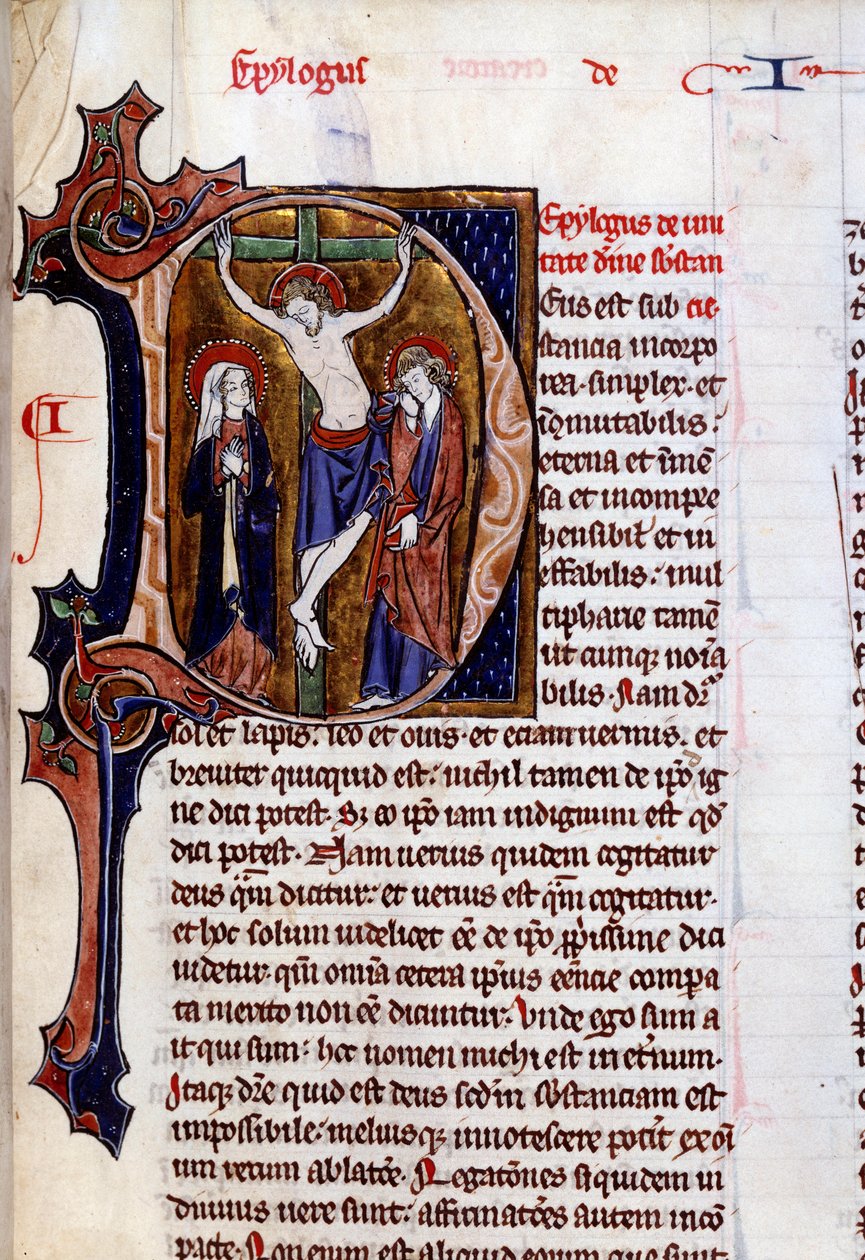 Epylogus de I
I
Epylogus de uni
tate dīne sƀstan
Eus est sub cie·
stancia incorpo
rea· simplex· et
inqmutabilis·
eterna et īmē
sa et incompre
hensibil' et in
effabilis: mul
tipharie tamē
ut cunqꝫ noīa
bilis· Nam dr̄
sol et lapis: leo et ouis· et eciam uermis· et
breuiter quicquid est: nichil tamen de ip̄o ig
ne dici potest· Sꝫ eo ip̄o iam indignum est qd̄
dici potest· Nam uerius quidem cogitatur
deus q̄m dicitur: et uerius est q̄m cogitatur·
et hoc solum uidelicet ēē de ip̄o ꝓp̄issime dici
uidetur· qm̄ omīa cetera ip̄ius eēncie compa
ta merito non ēē dicuntur: Vnde ego sum a
it qui sum: hoc nomen michi est in et̄num·
Itaqꝫ dr̄e quid est deus scd̄m sƀstanciam est
impossibile: meliusqꝫ innotescere pot̄it ex om̄
ium rerum ablatōe· Negatōnes siquidem in
diuinis uere sunt: affirmatōes autem incō
pacte· Non enim est aliquid eorum que sunt